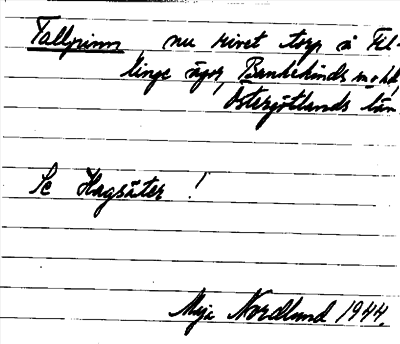 Tallpinn nu rivet torp å Fil-
linge ägor, Bankekinds
Östergötlands län.
Se Hagsäter!
Maja Nordlund 1944.